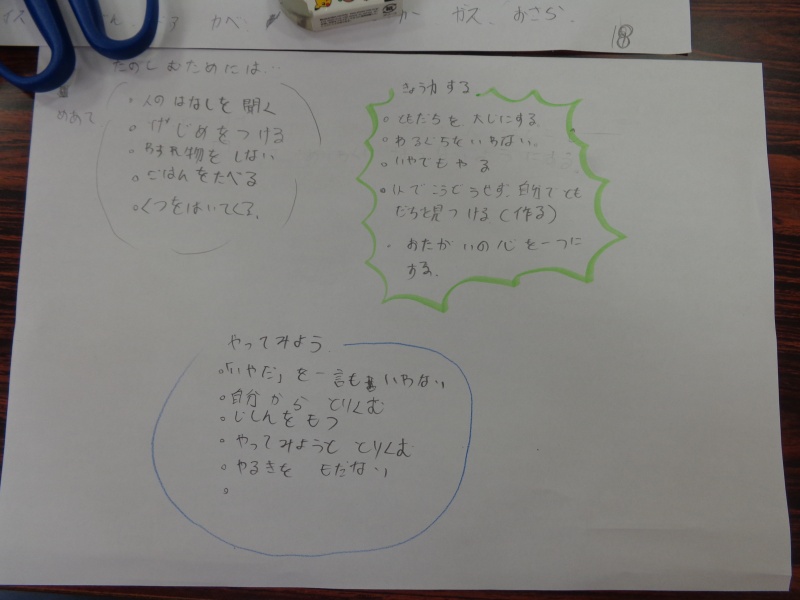 カベ
ガス、おさら、
18
たのしむためには…
めあて
人のはなしを聞く
けじめをつける
わすれ物をしない
ごはんをたべる
くつをはいてくる。
きょう力する。
ともだちを大じにする
わるぐちをいわない。
いやでもやる
1人でこうどうせず、自分でとも
だちを見つける(作る)
おたがいの心を一つに
する。
やってみよう
「いやだ」を一言もいわない
自分からとりくむ
じしんをもつ
やってみようととりくむ
やるきをもだない